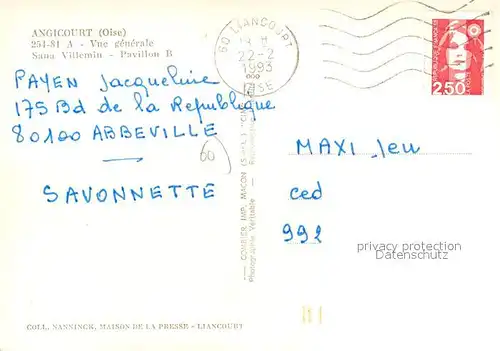 ANGICOURT (Oise)
254-81 A - Vue générale
Sana Villemin - Pavillon B
60 LIANCOURT
22-2
1993
OISE
RÉPUBLIQUE FRANÇAISE
2,50
PAYEN Jacqueline
175 Bd de la Republique
80100 ABBEVILLE
60
SAVONNETTE
MAXI Jeu
ced
992
privacy protection
Datenschutz
COMBIER IMP. MACON
Photographie Véritable
COLL. NANNINCK, MAISON DE LA PRESSE - LIANCOURT